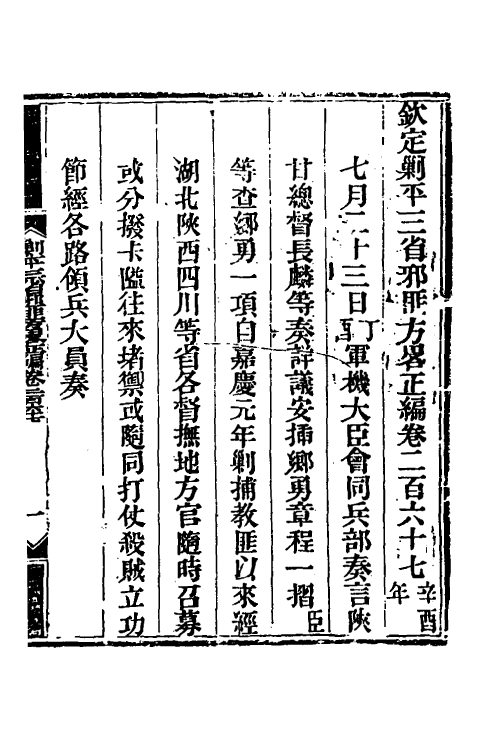 欽定剿平三省邪匪方畧正編卷二百六十七辛酉年
七月二十三日丁軍機大臣會同兵部奏言陝
甘總督長麟等奏詳議安揷鄉勇章程一摺臣
等查鄉勇一項自嘉慶元年剿捕教匪以來經
湖北陝西四川等省各督撫地方官隨時召募
或分撥卡隘往來堵禦或隨同打仗殺賊立功
節經各路領兵大員奏
剿平三省邪匪方畧正編卷二百六十七
一